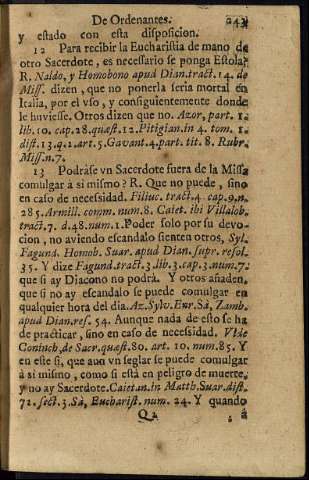 De Ordenantes. 243
y estado con esta disposicion.
12 Para recibir la Eucharistia de mano de
otro Sacerdote, es necessario se ponga Estola?
R. Naldo, y Homobono apud Dian. tract. 14. de
Miss. dizen, que no ponerla seria mortal en
Italia, por el vso, y consiguientemente donde
le huviesse. Otros dizen que no. Azor, part. 1.
lib. 10. cap. 28. quæst. 12. Pitigian. in 4. tom. 1.
dist. 13. q. 2. art. 5. Gavant. 4. part. tit. 8. Rubr.
Miss. n. 7.
13 Podràse vn Sacerdote fuera de la Missa
comulgar à si mismo? R. Que no puede, sino
en caso de necessidad. Filiuc. tract. 4 cap. 9. n.
285. Armill. comm. num. 8. Caiet. ibi Villalob.
tract. 7. d. 48. num. 1. Poder solo por su devo-
cion, no aviendo escandalo sienten otros, Syl.
Fagund. Homob. Suar. apud Dian. supr. resol.
35. Y dize Fagund. tract. 3. lib. 3. cap. 3. num. 7.
que si ay Diacono no podrà. Y otros añaden,
que si no ay escandalo se puede comulgar en
qualquier hora del dia. Az. Sylv. Enr. Sà, Zamb.
apud Dian. res. 54. Aunque nada de esto se ha
de practicar, sino en caso de necessidad. Vide
Coninch, de Sacr. quæst. 80. art. 10. num. 85. Y
en este si, que aun vn seglar se puede comulgar
à si mismo, como si està en peligro de muerte,
y no ay Sacerdote. Caietan. in Matth. Suar. dist.
72. sect. 3. Sà, Eucharist. num. 24. Y quando
Q 2 à